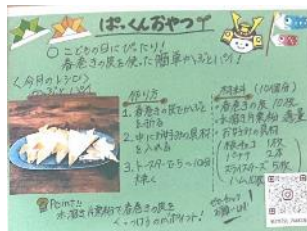 ぱっくんおやつ
○ こどもの日にぴったり！
春巻きの皮を使った簡単かぶとパイ！
＜今月のレシピ＞
かぶとパイ
作り方
1. 春巻きの皮でかぶとを折る
2. 中にお好みの具材を入れる
3. トースターで5〜10分焼く
材料（10個分）
・春巻きの皮 10枚
・水溶き片栗粉 適量
・お好みの具材
板チョコ 1枚
バナナ 2本
スライスチーズ 5枚
ハム 10枚
Point!!
水溶き片栗粉で春巻きの皮を
くっつけるのがポイント！